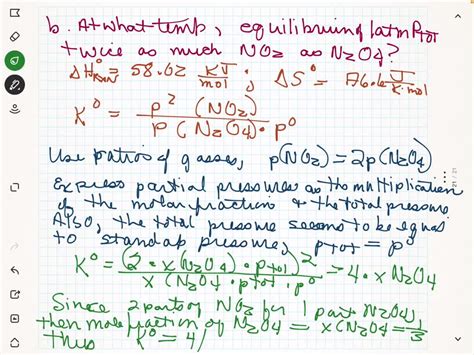 b. At what temp, equilibrium 1atm Ptot
twice as much NO₂ as N₂O₄?
ΔH°rxn = 58.02 kJ/mol ; ΔS° = 176.6 J/K·mol
K° = p²(NO₂) / p(N₂O₄)·p°
Use ratio of gasses, p(NO₂) = 2p(N₂O₄)
Express partial pressures as the multiplication
of the molar fractions & the total pressure
Also, the total pressure seems to be equal
to standard pressure, ptot = p°
K° = (2·x(N₂O₄)·ptot)² / x(N₂O₄·ptot·p° = 4·x N₂O₄
Since 2 parts of NO₂ for 1 part N₂O₄,
then mole fraction of N₂O₄ = x(N₂O₄ = 1/3
thus K° = 4/